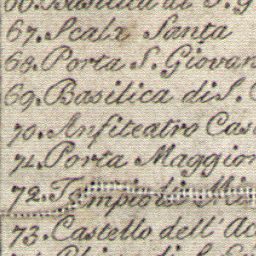 66. Basilica di S. G
67. Scala Santa
68. Porta S. Giovan
69. Basilica di S. C
70. Anfiteatro Cas
71. Porta Maggior
72. Tempio di Mi
73. Castello dell' Ac